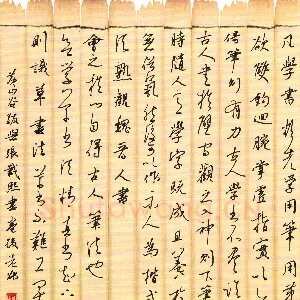 凡學書欲先學用筆用筆
欲雙鉤迴腕掌虛指實以
倚筆則有力古人學書不盡
古人書於壁間觀之入神則下筆
時隨人意學字既成且養於
無俗氣然後可以作示人為楷式
熟觀魏晉人書
會之於心自得古人筆法也
欲學草書須精真書知
則識草書法草書不難工矣
黃山谷跋與張載熙書卷後